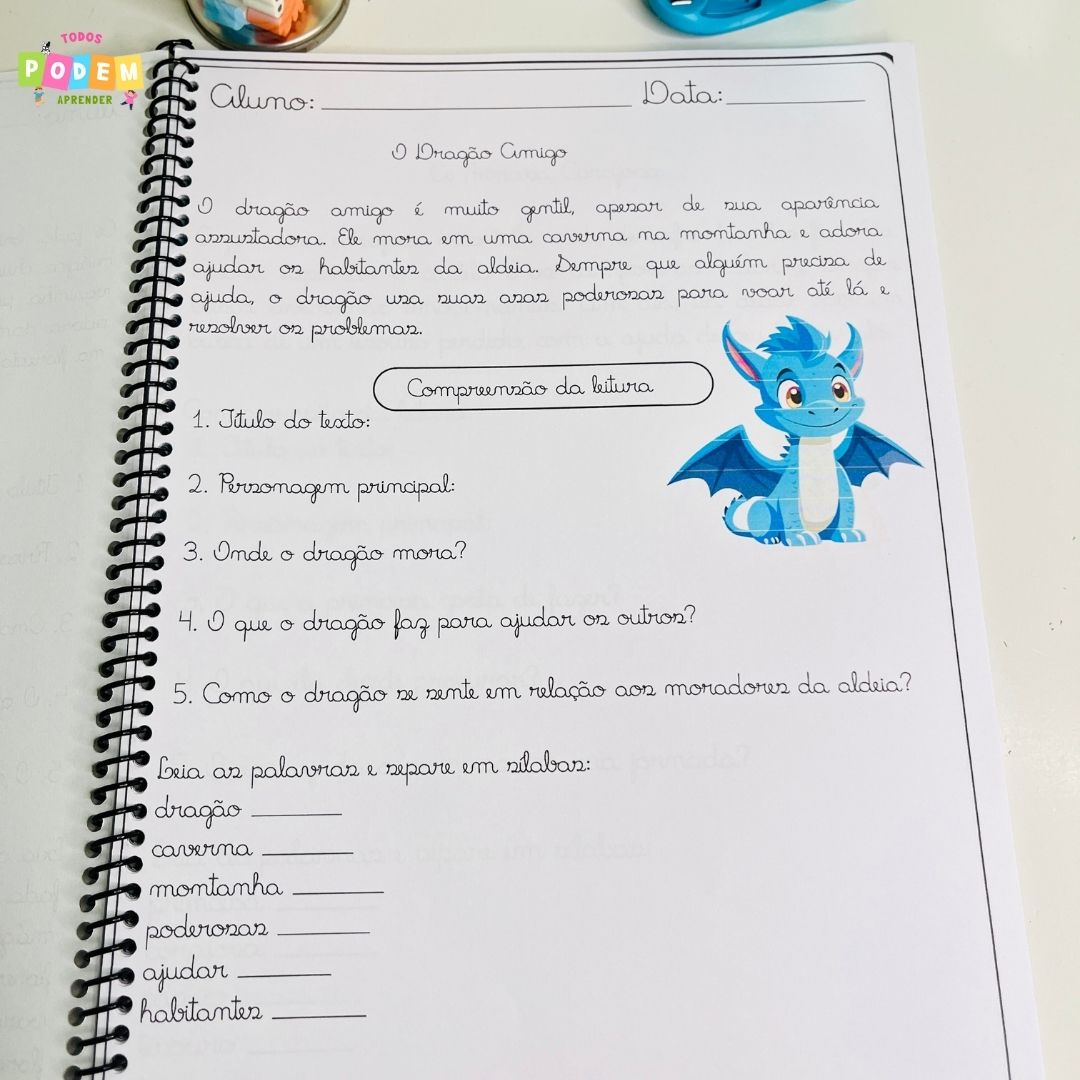 TODOS
PODEM
APRENDER
Aluno: ____________ Data: ____________
O Dragão Amigo
O dragão amigo é muito gentil, apesar de sua aparência
assustadora. Ele mora em uma caverna na montanha e adora
ajudar os habitantes da aldeia. Sempre que alguém precisa de
ajuda, o dragão usa suas asas poderosas para voar até lá e
resolver os problemas.
Compreensão da leitura
1. Título do texto:
2. Personagem principal:
3. Onde o dragão mora?
4. O que o dragão faz para ajudar os outros?
5. Como o dragão se sente em relação aos moradores da aldeia?
Leia as palavras e separe em sílabas:
dragão ________
caverna ________
montanha ________
poderosas ________
ajudar ________
habitantes ________